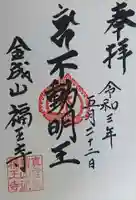 奉拝
令和三年
五月二十二日
不動明王
金亀山 福王寺